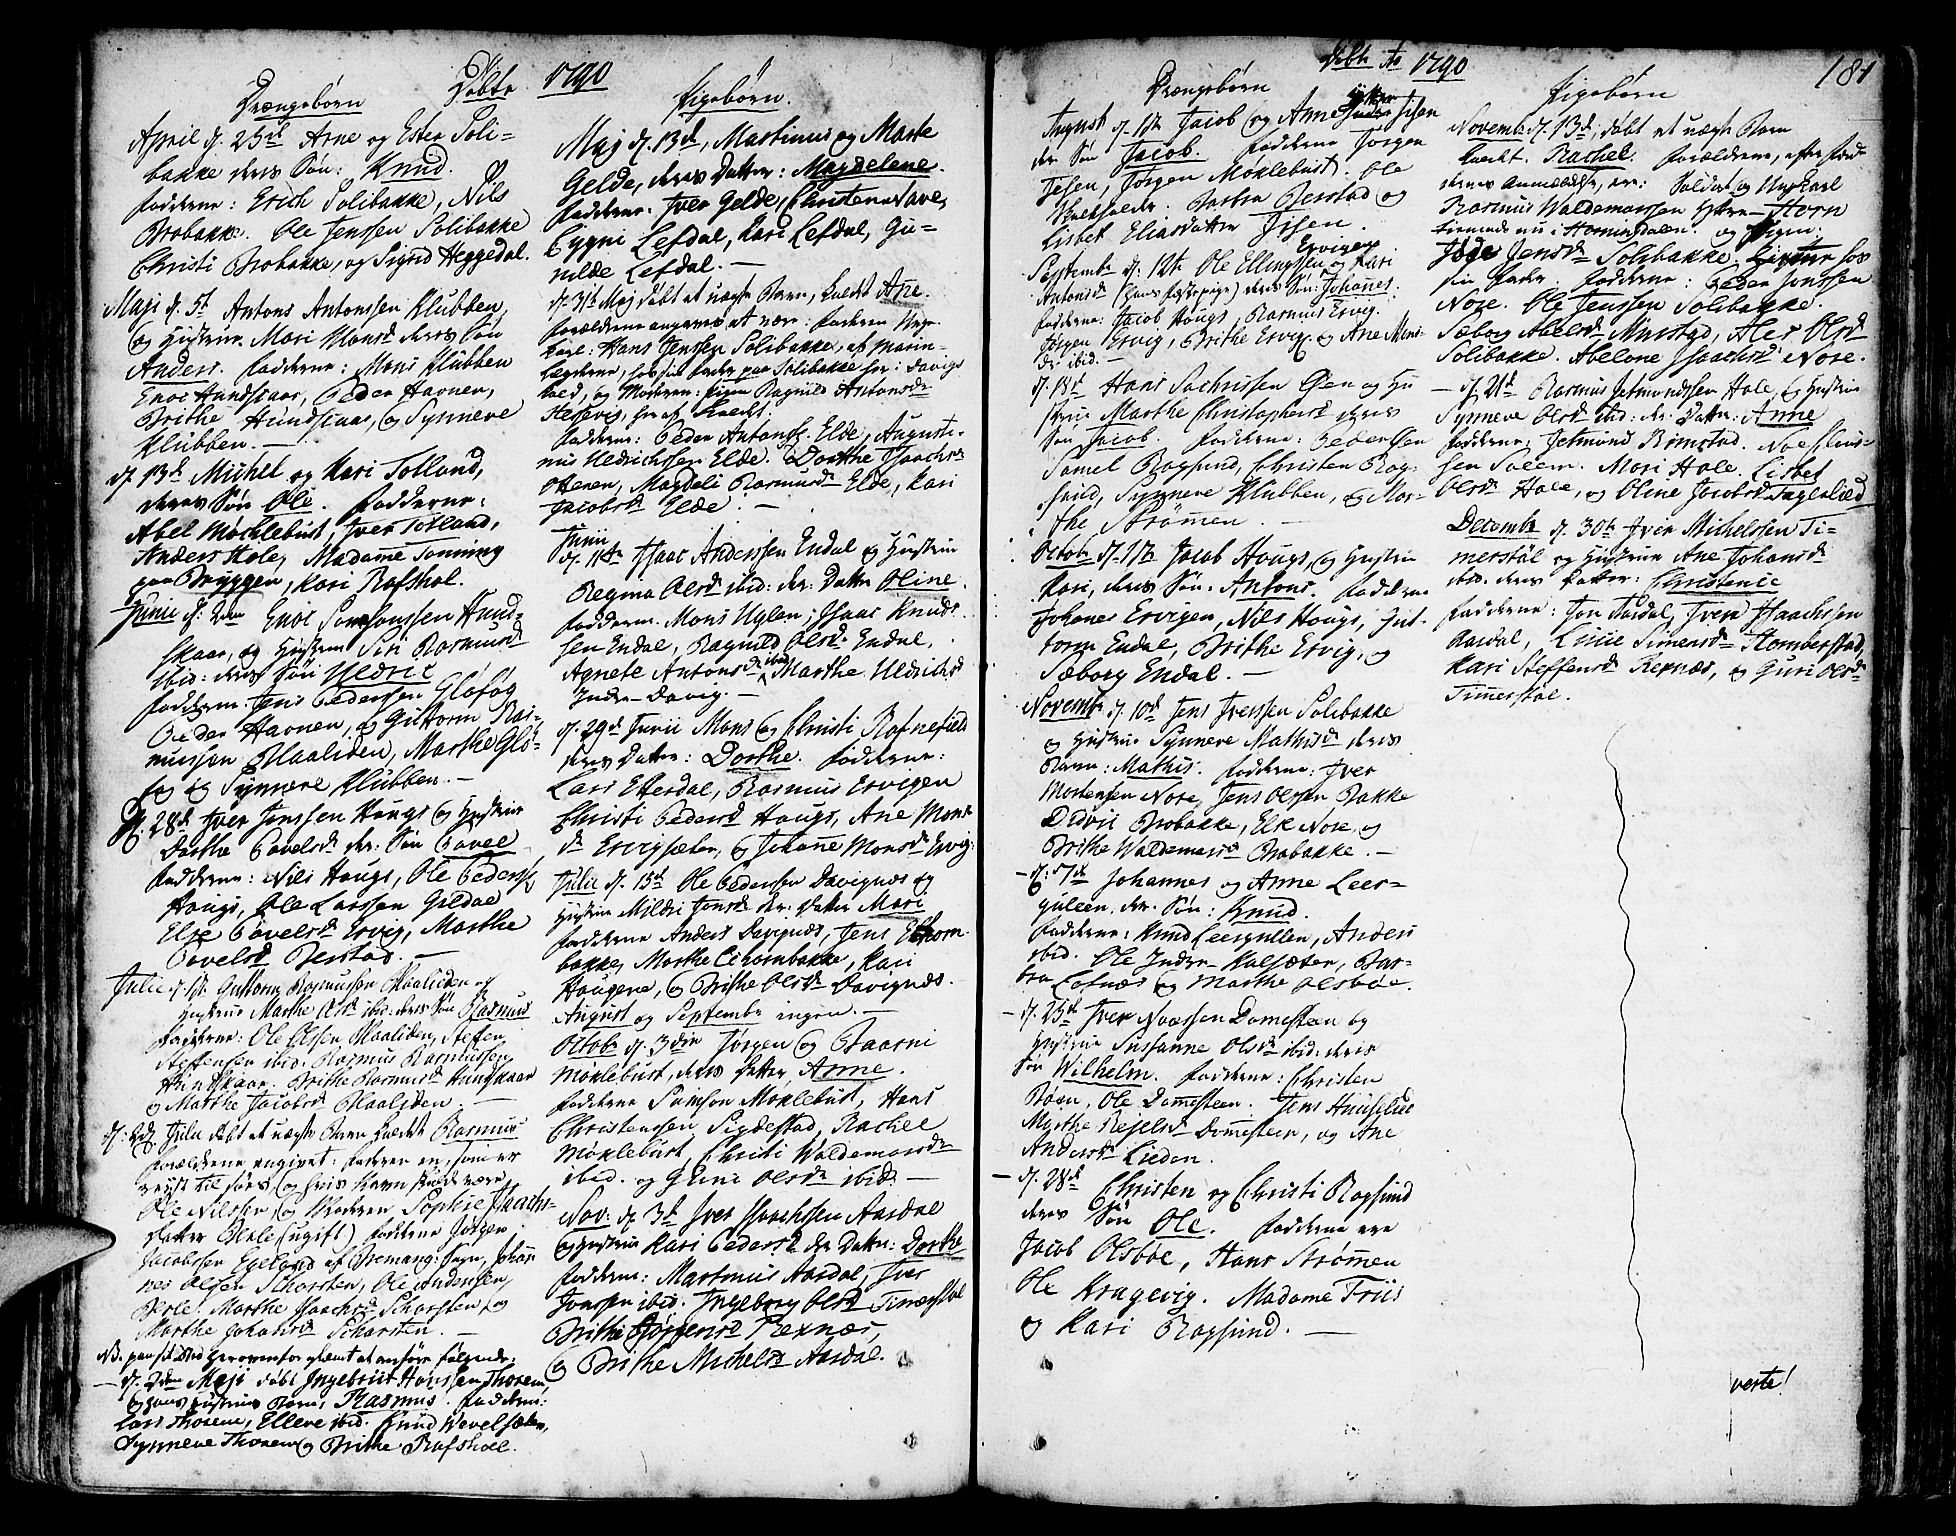 Døbte 1790
Drængebørn
April d. 25de Arne og Ester Soli-
bakke deres Søn: Knud.
Fadderne: Erich Solibakke, Nils
Brobakke. Ole Jenssen Solibakke
Christi Brobakke, og Sigrid Heggedal.
Maji d. 5t Antons Antonssen Klubben,
og Hustrue Mari Monsd. deres Søn
Anders. Fadderne: Mons Klubben
Enoc Hundskaar, Peder Havnen,
Brithe Hundskaar, og Synneve
Klubben. —
d. 13d Michel og Kari Totland,
deres Søn Ole. Fadderne:
Abel Møcklebust, Iver Totland,
Anders Hole, Madame Tonning
paa Bryggen, Kari Rafshol.
Junii d. 2den Enoc Samsonssen Hund-
skaar, og Hustrue Siri Rasmusd.
ibid: deres Søn Uldric
Fadderne: Jens Pedersen Gløfog
Peder Havnen, og Guttorm Ras-
mussen Maaliden, Marthe Glø-
fog og Synneve Klubben. —
d. 28d. Iver Jonssen Hougs og Hustrue
Dorthe Povelsd. der: Søn Povel
Fadderne: Nils Hougs, Ole Peders.
Hougs, Ole Larssen Gildal
Else Povelsd. Ervig, Marthe
Povelsd. Berstad. —
Julii d. Guttorm Rasmussen Maaliden og
Hustrue Marthe Olsd. ibid: deres Søn Rasmus
Fadderne: Ole Olsen Maaliden, Steffen
Steffensen ibid. Rasmus Rasmussen
Hundskaar. Brithe Rasmusd. Hundskaar
og Marthe Jacobsd. Maaliden. —
d: Julii døbt et uægte Barn kaldet Rasmus
Forældrene angivet: Faderen en, som er
reyst til søes og hvis Navn skulde være
Ole Nilssen og Moderen Sophie Isaachs-
datter Berle (ugift) Fadderne Jørgen
Jacobssen Egeland af Bremang: Sogn, Johan-
nes Olsen Schorsten, Ole Andersen,
Berle. Marthe Isaachsd. Schorsten, og
Marthe Johansd. Schorsten. —
NB. paa sit Sted herovenfor glemt at anføre følgende:
— d. 2den Maji døbt Ingebrict Hanssen Thorem
og hans Hustrues Barn, Rasmus. Fadderne:
Lars Thorem, Elleve ibid. Knud Wevelsæter,
Synneve Thorem og Brithe Rafshol.
Pigebørn.
Maj d. 13d, Martinus og Marte
Gelde, deres Datter: Magdelene.
Fadderne. Iver Gelde, Christen Nave,
Cygni Lefdal, Kari Lefdal, Gu-
nilde Lefdal. —
d. 31t Maj døbt et uægte Barn, kaldet Ane.
Forældrene angaves at være: Faderen Ung-
karl: Hans Jenssen Solibakke, af Marin-
Lægderne, hos sin Fader paa Solibakke her: i Davigs
, og Moderen: Pigen Ragnild Antonsd.
Fadderne: Peder Antonss. Elde, Augusti-
nus Uldrichssen Elde. Dorthe Isaachsd.
Otteren, Magdeli Rasmusd. Elde, Kari
Jacobsd. Elde. —
Junii
d. 11te Isaac Anderssen Endal og Hustrue
Regina Olsd. ibid: der: Datter Oline.
Fadderne. Mons Uglen, Isaac Knuds-
sen Endal, Ragnild Olsd. Endal,
Agnete Antonsd. ibid Marthe Uldrichsd.
Indre-Davig. —
d. 29d Junii Mons og Christi Rafnefield
deres Datter: Dorthe. Fadderne:
Lars Etterdal, Rasmus Ervigen
Christi Pedersd. Hougs, Ane Mons-
d. Ervigsæter, og Johanne Monsd. Ervig.
Julii d. 15d Ole Pedersen Davignes og
Hustrue Mildri Jonsd. der: Datter Mari
Fadderne Anders Davignæs, Jens Ethom-
bakke, Marthe Ethombakke, Kari
Haugene, og Brithe Olsd. Davignæs.
August og Septembr ingen. —
Octob: d. 3die Jørgen og Baarni
Møklebust, deres Datter Anne.
Fadderne Samson Møklebust, Hans
Christenssen, Sigdestad, Rachel
Møklebust, Christi Waldemarsd.
ibid. og Guni Olsd. ibid. —
Nov: d. 3d Iver Isaachssen Aasdal
og Hustrue Kari Pedersd. der Datter: Dorthe
Fadderne: Martinus Aasdal, Iver
Jonssen ibid. Ingeborg Olsd. Timerstøl
Brithe Jørgensd. Rexnæs,
og Brithe Michelsd. Aasdal.
Døbte Ao 1790
181
Drængebørn
August d. 1t Jacob og Anne Isen
der: Søn Jacob. Fadderne Jørgen
Isen, Jørgen Møklebust. Ole
. Barbra Berstad og
Lisbet Eliasdatter Isen.
Septembr d. 12t Ole Ellingssen Ervigen og Kari
Antonsd. (hans Fæstepige) deres Søn: Johanes.
Fadderne: Jacob Hougs, Rasmus Ervig.
Jørgen Ervig, Brithe Ervig. og Ane Mons-
d. ibid. —
d. 18d Hans Sachrissen Øen og Hu-
strue Marthe Christophersd. deres
Søn Jacob. Fadderne: Peder Øen
Samel Rogsund, Christen Rog-
sund, Synneve Klubben, og Mar-
the Strømmen. —
Octobr d. 17t Jacob Hougs, og Hustrue
Kari, deres Søn. Antons. Fadderne
Johanes Ervigen, Nils Hougs, Gut-
torm Endal, Brithe Ervig, og
Sæborg Endal. —
Novembr d. 10d Jens Iverssen Solibakke
og Hustrue Synneve Mathisd. deres
Barn: Mathis. Fadderne: Iver
Mortensen Nore, Jens Olsen Bakke
Didric Brobakke, Elk Nore, og
Brithe Waldemarsd. Brobakke. —
— d: Johannes og Anne Leer-
gulen, der. Søn: Knud.
Fadderne: Knud Leergullen, Anders
ibid. Ole Indre Kalsæter, Bar-
bra Lofnæs og Marthe Olsbøe.
— d. 25de Iver Noassen Domesteen og
Hustrue Susanne Olsd. ibid: deres
Søn Wilhelm. Fadderne: Christen
Bøen, Ole Domesteen. Jens Huuslid
Myrthe Reselsd. Domesteen, og Ane
Andersd. Lieden.
— d. 28d Christen og Christi Rogsund
deres Søn Ole. Fadderne ere
Jacob Olsbøe, Hans Strømen
Ole Kragevig. Madame Friis
og Kari Rogsund. —
Pigebørn
Novembr d. 13d, døbt et uægte Barn
kaldt. Rachel. Forældrene, efter Fad-
dernes Anmeldelse, ere: Soldat og Ungkarl
Rasmus Waldemarssen Ytre-Horn
tienende nu i Horningdalen. og Pigen:
Jensd. Solibakke. hos
sin Fader. Fadderne: Peder Jonssen
Nore. Ole Jenssen Solibakke.
Sæborg Abelsd. Myrstad, Aler Olsd.
Solibakke. Abelone Isaachsd. Nore.
— d. 21d Rasmus Jetmundssen Hole, og Hustrue
Synneve Olsd. ibid: der: Datter: Anne
Fadderne: Jetmund Rimstad. Noe Claus-
sen Soleem. Mari Hole. Lisbet
Olsd. Hole, og Oline Jacobsd. Fagerlied
Decembr d. 30te Iver Michelssen Ti-
merstøl og Hustrue Ane Johansd.
ibid. deres Datter: Christence
Fadderne: Jon Aasdal, Iver Isaachssen
Aasdal, Lucie Simensd. Homberstad,
Kari Steffensd. Rexnæs, og Guri Olsd.
Timerstøl.
verte!